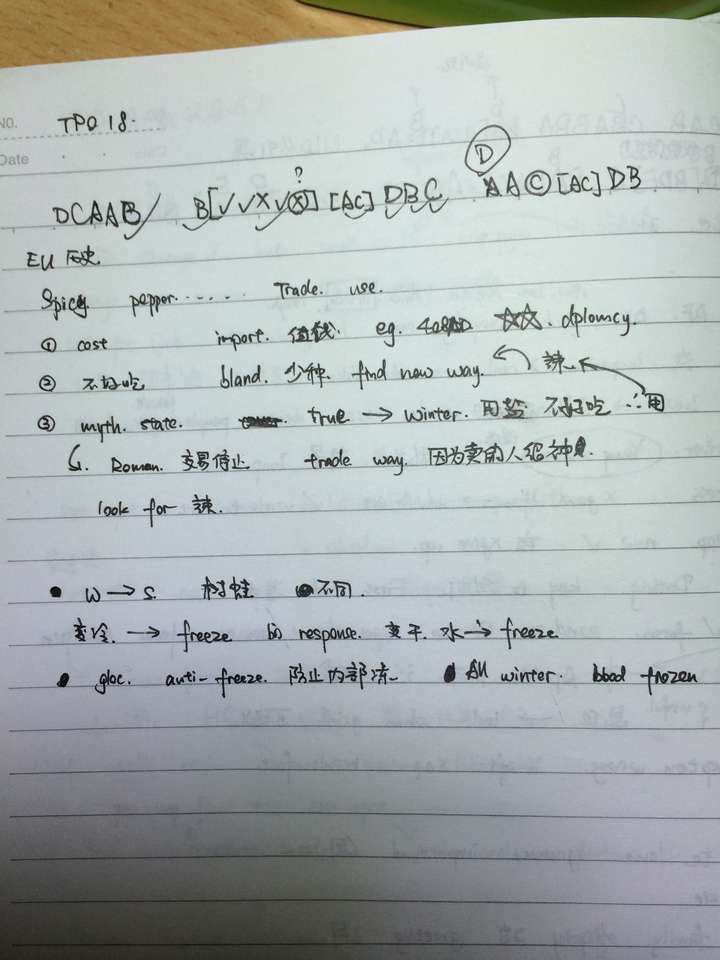 No.
TPO 18.
Date
?
D
DCAAB B[✓✓X✓Ⓧ] [AC] DBC AAⒸ[AC]DB
EU 历史
Spices pepper...... Trade. use.
① cost import. 值钱. eg. ☆☆. dplomcy.
② 不好吃 bland. 少种. find new way. 辣.
③ myth. state. true → winter. 用盐 不好吃 ∴用
Roman. 交易停止 trade way. 因为卖的人很神
look for 辣.
• W → S. 树蛙 不同.
变冷. → freeze 的 response. 变干. 水 → freeze
• gloc. anti-freeze. 防止内部冻 • All winter. blood frozen